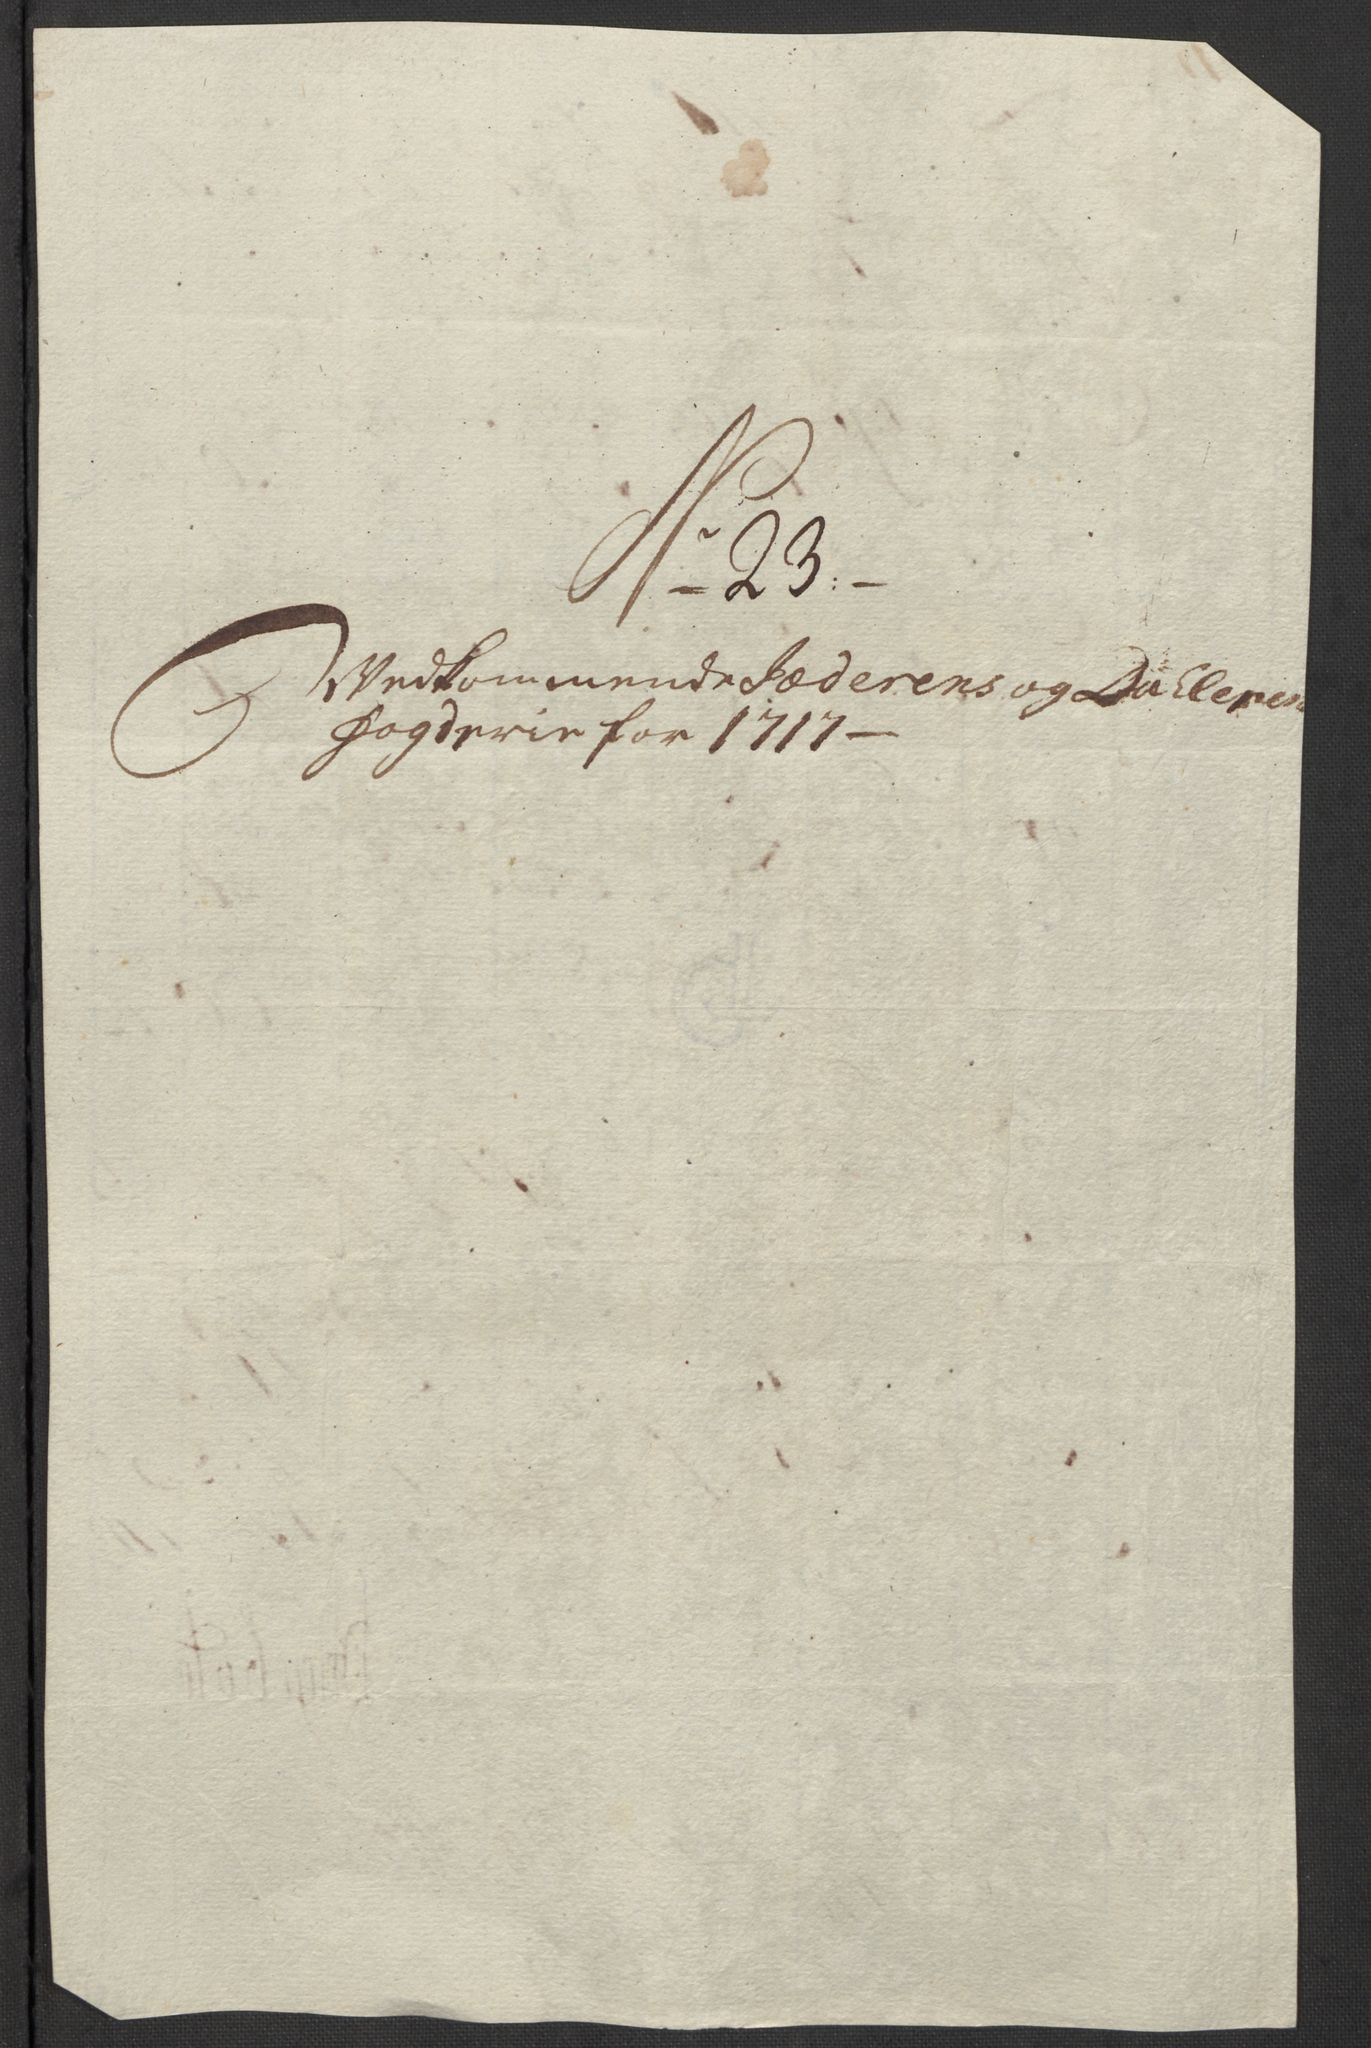 No 23:-
Vedkommende Jæderens og Dallerens
fogderie for 1717-